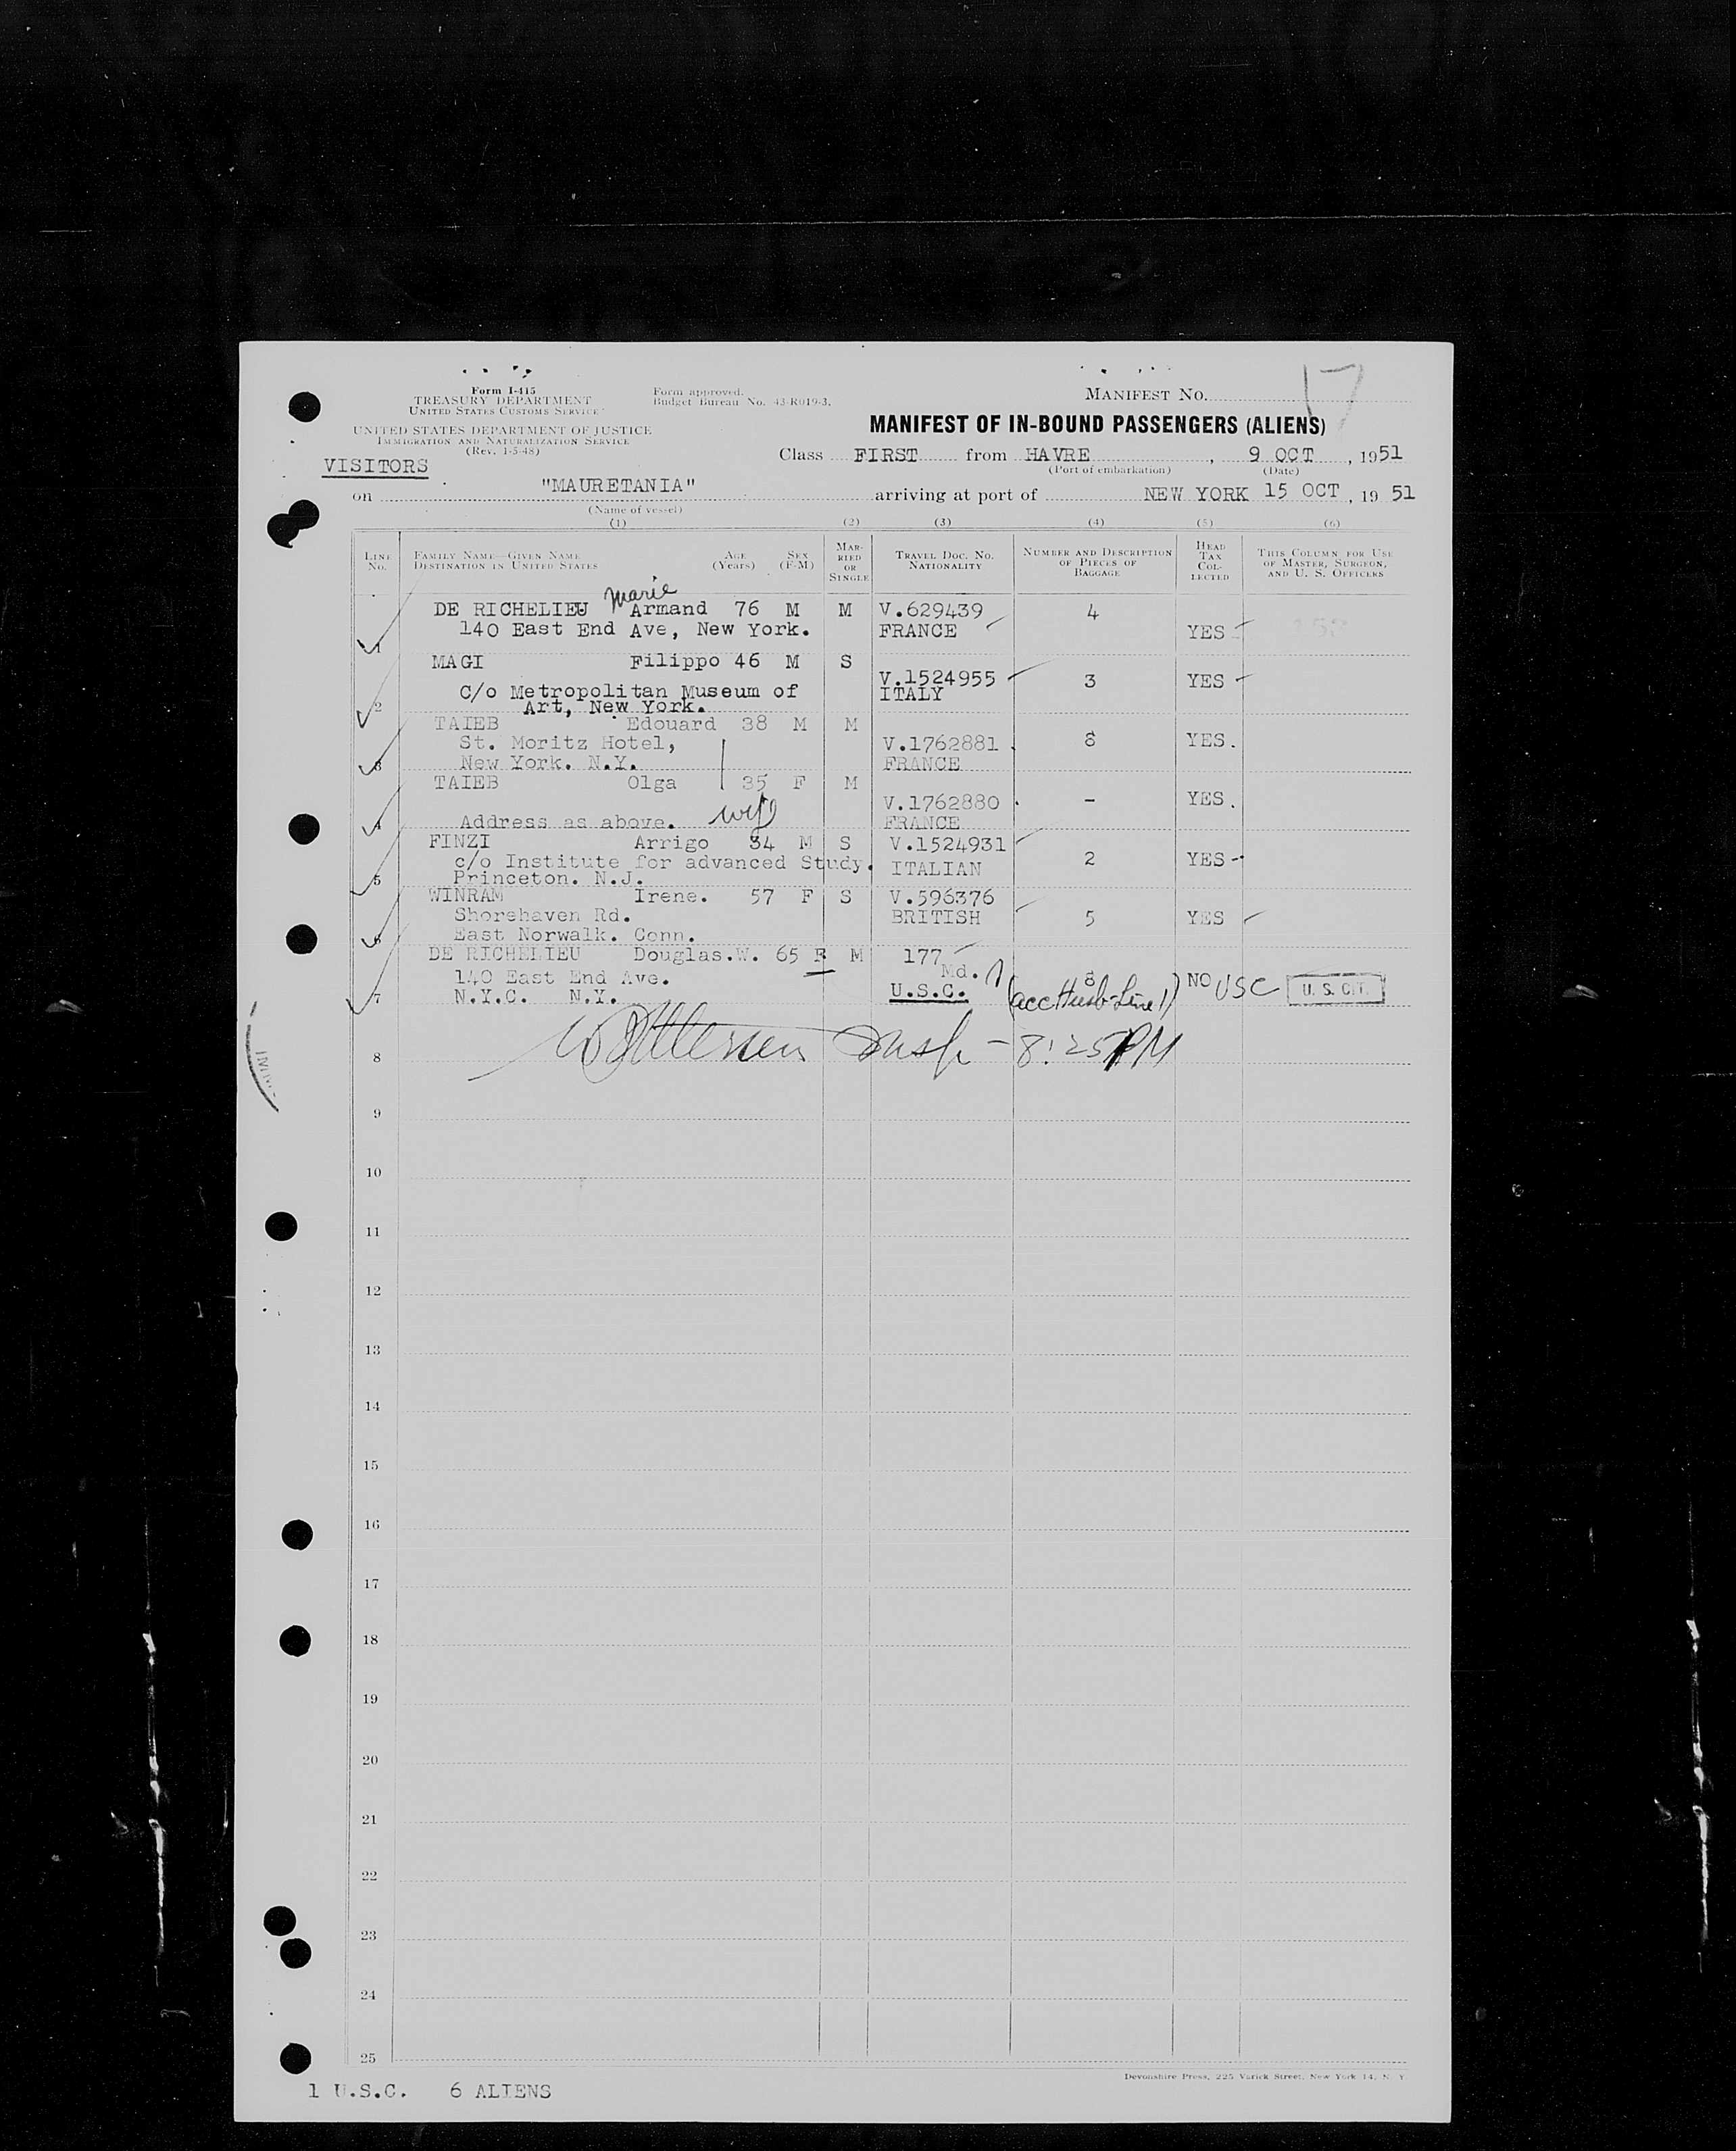 Form I-415
TREASURY DEPARTMENT
UNITED STATES CUSTOMS SERVICE
UNITED STATES DEPARTMENT OF JUSTICE
IMMIGRATION AND NATURALIZATION SERVICE
(Rev. 1-5-48)
Form approved.
Budget Bureau No. 43-R019-3.
MANIFEST NO. 17
MANIFEST OF IN-BOUND PASSENGERS (ALIENS)
VISITORS
Class FIRST from HAVRE, 9 OCT, 1951
(Port of embarkation) (Date)
on "MAURETANIA" arriving at port of NEW YORK 15 OCT, 19 51
(Name of vessel)
(1) (2) (3) (4) (5) (6)
LINE NO. FAMILY NAME—GIVEN NAME DESTINATION IN UNITED STATES AGE (Years) SEX (F-M) MARRIED OR SINGLE TRAVEL DOC. NO. NATIONALITY NUMBER AND DESCRIPTION OF PIECES OF BAGGAGE HEAD TAX COLLECTED THIS COLUMN FOR USE OF MASTER, SURGEON, AND U. S. OFFICERS
Marie
DE RICHELIEU Armand 76 M M V.629439 4
1 140 East End Ave, New York. FRANCE YES
MAGI Filippo 46 M S
V.1524955 3 YES
C/o Metropolitan Museum of ITALY
2 Art, New York.
TAIEB Edouard 38 M M
St. Moritz Hotel, V.1762881 8 YES.
3 New York. N.Y. FRANCE
TAIEB Olga 35 F M
V.1762880 - YES.
4 Address as above. wife FRANCE
FINZI Arrigo 34 M S V.1524931
c/o Institute for advanced Study. ITALIAN 2 YES-
5 Princeton. N.J.
WINRAM Irene. 57 F S V.596376
Shorehaven Rd. BRITISH 5 YES
6 East Norwalk. Conn.
DE RICHELIEU Douglas.W. 65 F M 177
140 East End Ave. Md. 8 NO USC U. S. CIT.
7 N.Y.C. N.Y. U.S.C. (acc Husb-Line 1)
8 Insp - 8:25 PM
9
10
11
12
13
14
15
16
17
18
19
20
21
22
23
24
25
Devonshire Press, 225 Varick Street, New York 14, N. Y.
1 U.S.C. 6 ALIENS